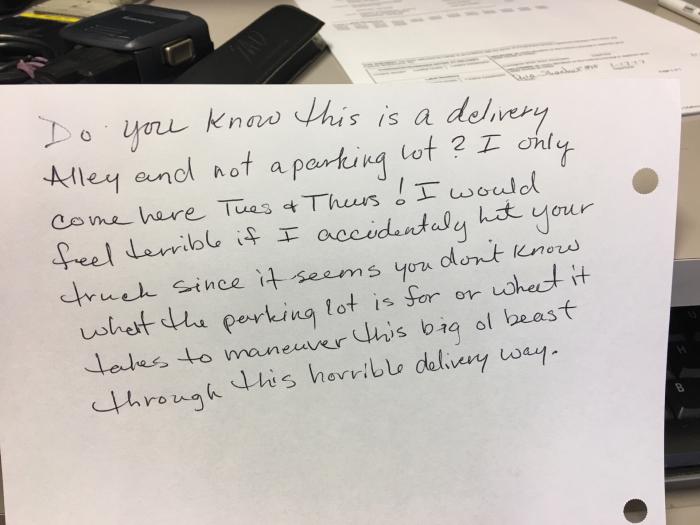 Do you know this is a delivery
Alley and not a parking lot? I only
come here Tues & Thurs! I would
feel terrible if I accidentaly hit your
truck since it seems you don't know
what the parking lot is for or what it
takes to maneuver this big ol beast
through this horrible delivery way.